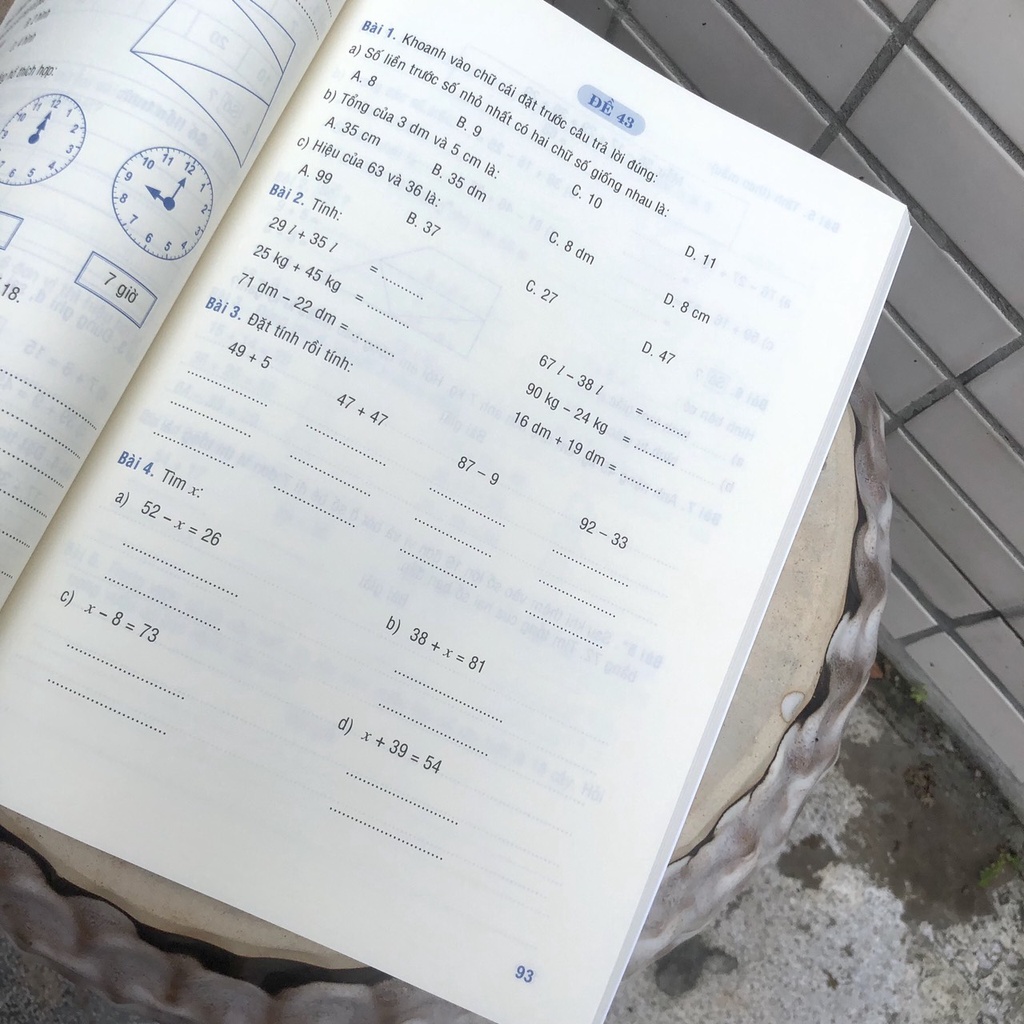 ồ thích hợp:
7 giờ
18.
ĐỀ 43
Bài 1. Khoanh vào chữ cái đặt trước câu trả lời đúng:
a) Số liền trước số nhỏ nhất có hai chữ số giống nhau là:
A. 8 B. 9 C. 10 D. 11
b) Tổng của 3 dm và 5 cm là:
A. 35 cm B. 35 dm C. 8 dm D. 8 cm
c) Hiệu của 63 và 36 là:
A. 99 B. 37 C. 27 D. 47
Bài 2. Tính:
29 l + 35 l = .......... 67 l – 38 l = ..........
25 kg + 45 kg = .......... 90 kg – 24 kg = ..........
71 dm – 22 dm = .......... 16 dm + 19 dm = ..........
Bài 3. Đặt tính rồi tính:
49 + 5 47 + 47 87 – 9 92 – 33
Bài 4. Tìm x:
a) 52 – x = 26 b) 38 + x = 81
c) x – 8 = 73 d) x + 39 = 54
93